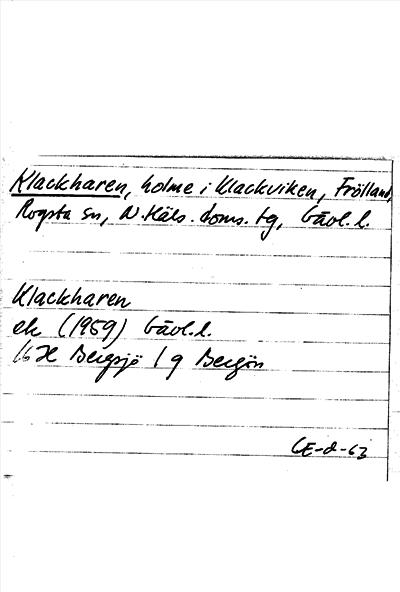 Klackharen, holme i Klackviken, Frölland,
Rogsta sn, N. Häls. doms. tg, Gävl. l.
Klackharen
ek (1959) Gävl. l.
16 H Bergsjö 1 g Bergön
GE-d-63